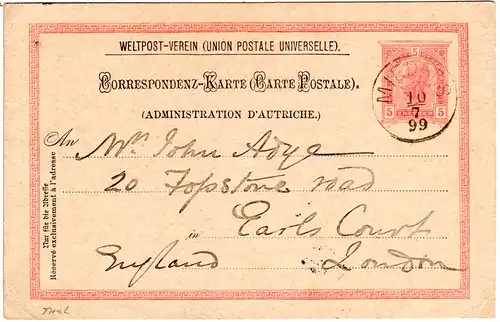 WELTPOST-VEREIN (UNION POSTALE UNIVERSELLE).
CORRESPONDENZ-KARTE (CARTE POSTALE).
(ADMINISTRATION D'AUTRICHE.)
5
5 5
10
7
99
Nur für die Adresse
Réservé exclusivement à l'adresse
An Mrs John Adye
20 Topstone road
in Earls Court
England London